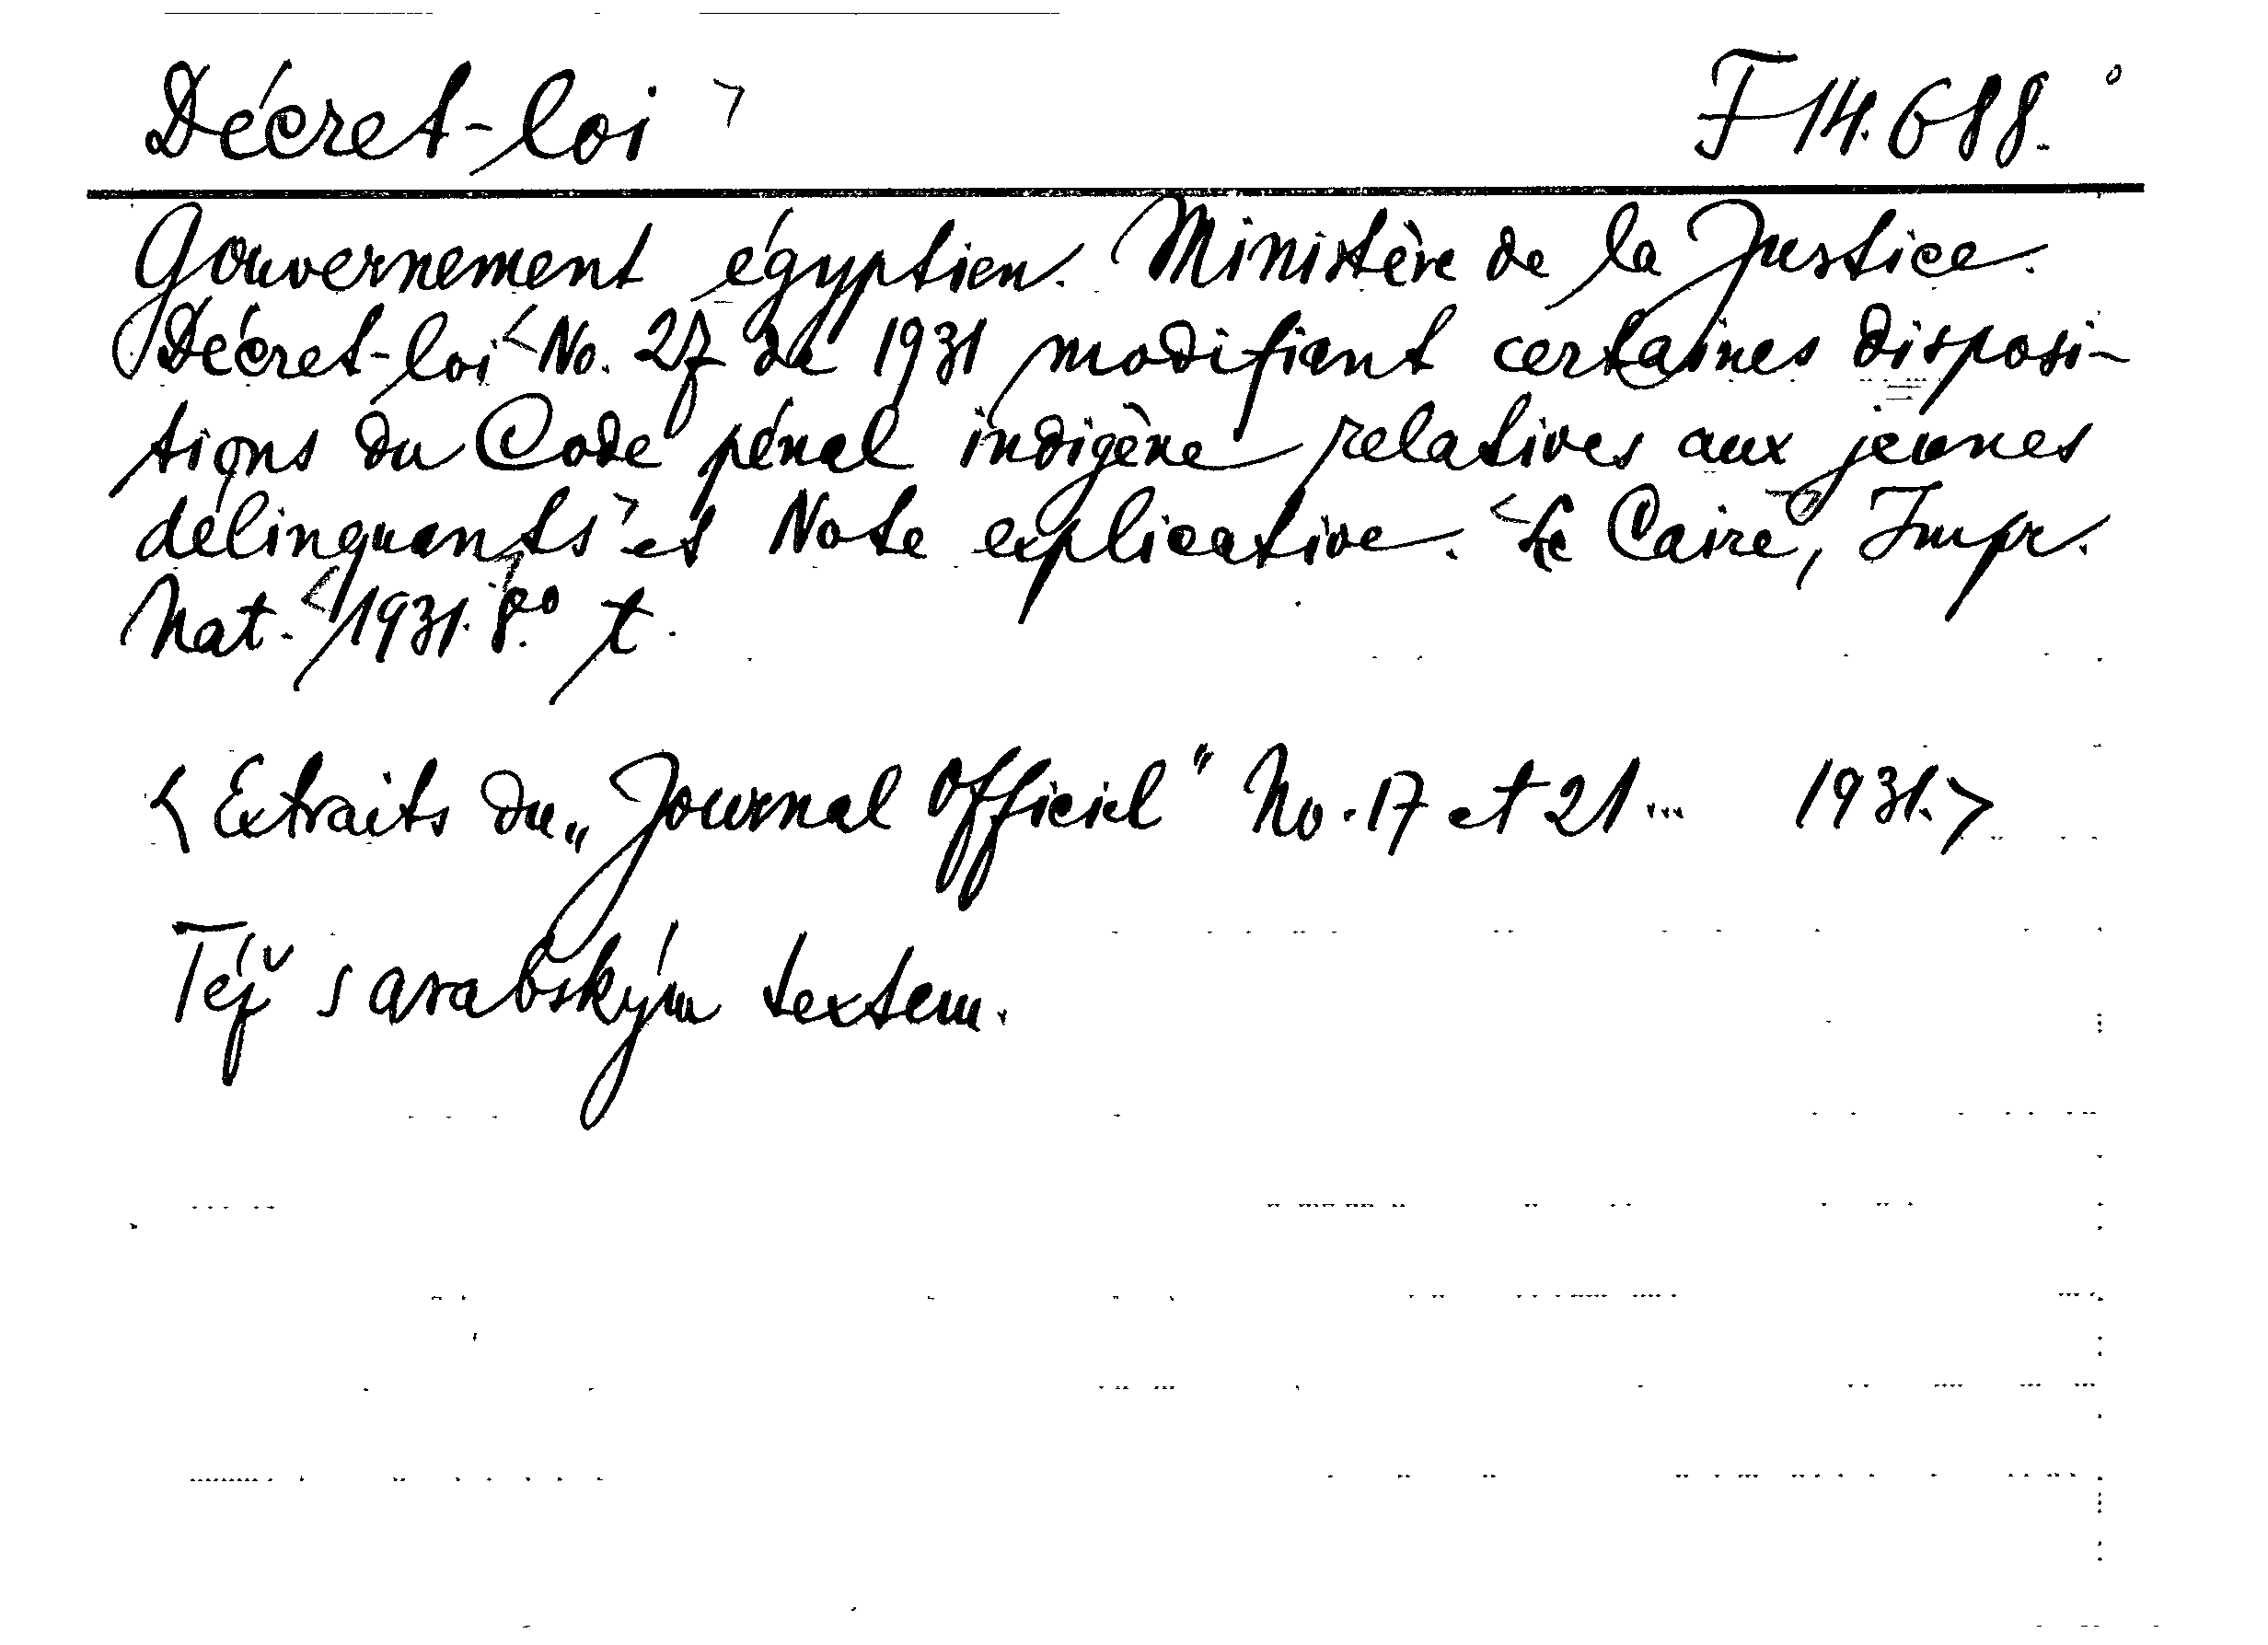 Décret-loi > F 14.688.
Gouvernement égyptien. Ministère de la Justice.
Décret-loi < No. 27 de 1931 modifiant certaines disposi-
tions du Code pénal indigène relatives aux jeunes
délinquants > et Note explicative. < Le Caire >, Impr.
Nat. < 1931. > 8.° t.
< Extraits du „Journal Officiel" No. 17 et 21 ... 1931. >
Též s arabským textem.